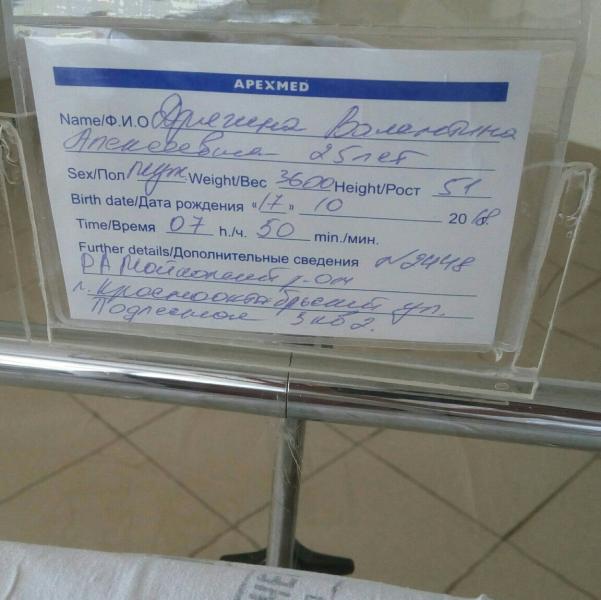 APEXMED
Name/Ф.И.О Валентина
Алексеевна 25 лет
Sex/Пол муж Weight/Вес 3600 Height/Рост 51
Birth date/Дата рождения «17» 10 2018г.
Time/Время 07 h./ч. 50 min./мин.
Further details/Дополнительные сведения N2448
РА Майкопский р-он
п. Краснооктябрьский ул.
Подлесная 3 кв 2.